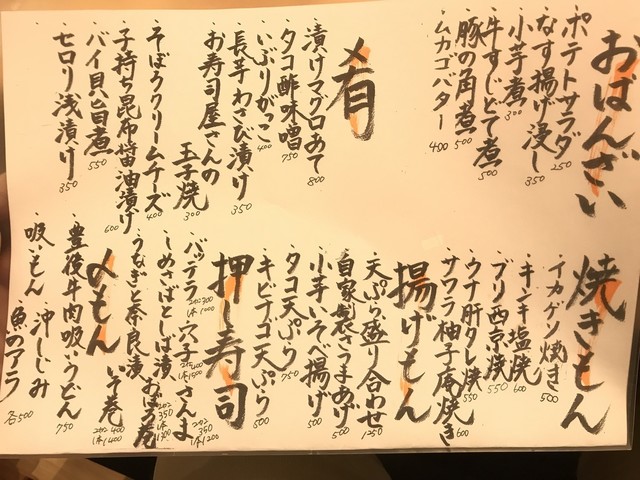 おばんざい
・ポテトサラダ 250
・なす揚げ浸し 350
・小芋煮 300
・牛すじどて煮 500
・豚の角煮 500
・ムカゴバター 400
肴
・漬けマグロあて 800
・タコ酢味噌 750
・いぶりがっこ 400
・長芋わさび漬け 350
・お寿司屋さんの
玉子焼 300
・そぼろクリームチーズ 400
・子持ち昆布醤油漬け 600
・バイ貝旨煮 550
・セロリ浅漬け 350
焼きもん
・イカゲソ焼き 500
・キンキ塩焼 600
・ブリ西京焼 550
・ウナ肝タレ焼 550
・サワラ柚子庵焼き 600
揚げもん
・天ぷら盛り合わせ 1250
・自家製さつまあげ 500
・小芋いそべ揚げ 500
・タコ天ぷら 750
・キビナゴ天ぷら 500
押し寿司
・バッテラ ・穴子 ・さんま
・しめさばとしば漬 おぼろ巻
・うなぎと奈良漬 いそ巻
〆もん
・豊後牛肉吸いうどん 750
・吸いもん 沖しじみ
・魚のアラ 各500